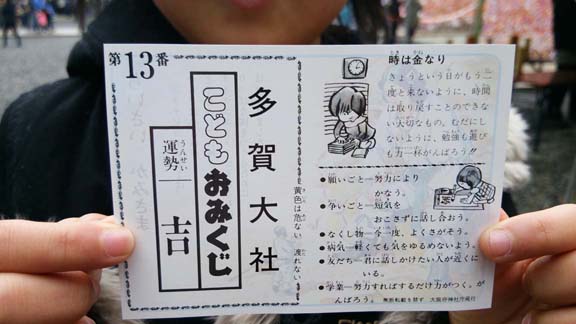 第13番
多賀大社
こどもおみくじ
運勢 吉
うんせい
黄色は危ない 渡れない
時は金なり
とき かね
きょうという日がもう二
度と来ないように、時間
は取り戻すことのできな
い大切なもの。むだにし
ないように、勉強も遊び
も力一杯がんばろう!!
●願いごと―努力により
かなう。
●争いごと―短気を
おこさずに話し合おう。
●なくし物―今一度、よくさがそう。
●病気―軽くても気をゆるめないよう。
●友だち―君に話しかけたい人が近くに
いる。
●学業―努力すればするだけ力がつく。が
んばろう。 無断転載を禁ず 大阪府神社庁発行